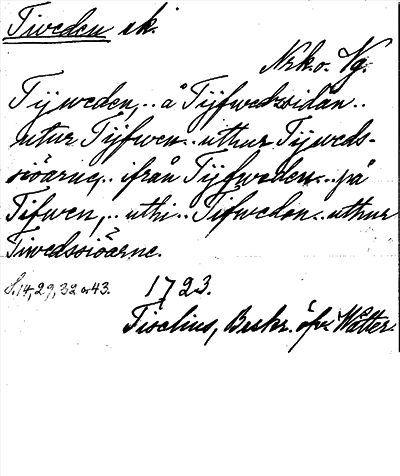 Tiweden sk.
Nrk.o. Vg.
Tijweden,.. å Tijfwedzsidan..
utur Tijfwen.. uthur Tijweds-
siöarne,.. ifrån Tijfweden.. på
Tifwen,.. uthi.. Tifweden.. uthur
Tiwedssiöarne.
S. 14, 29, 32 o 43. 1723.
Tiselius, Beskr. öfv. Wätter